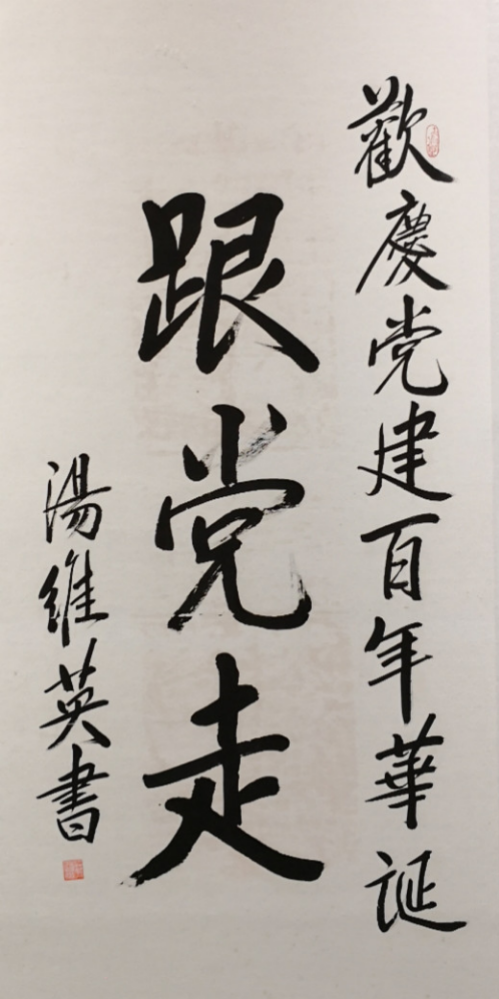 歡慶党建百年華诞
跟党走
湯維英書